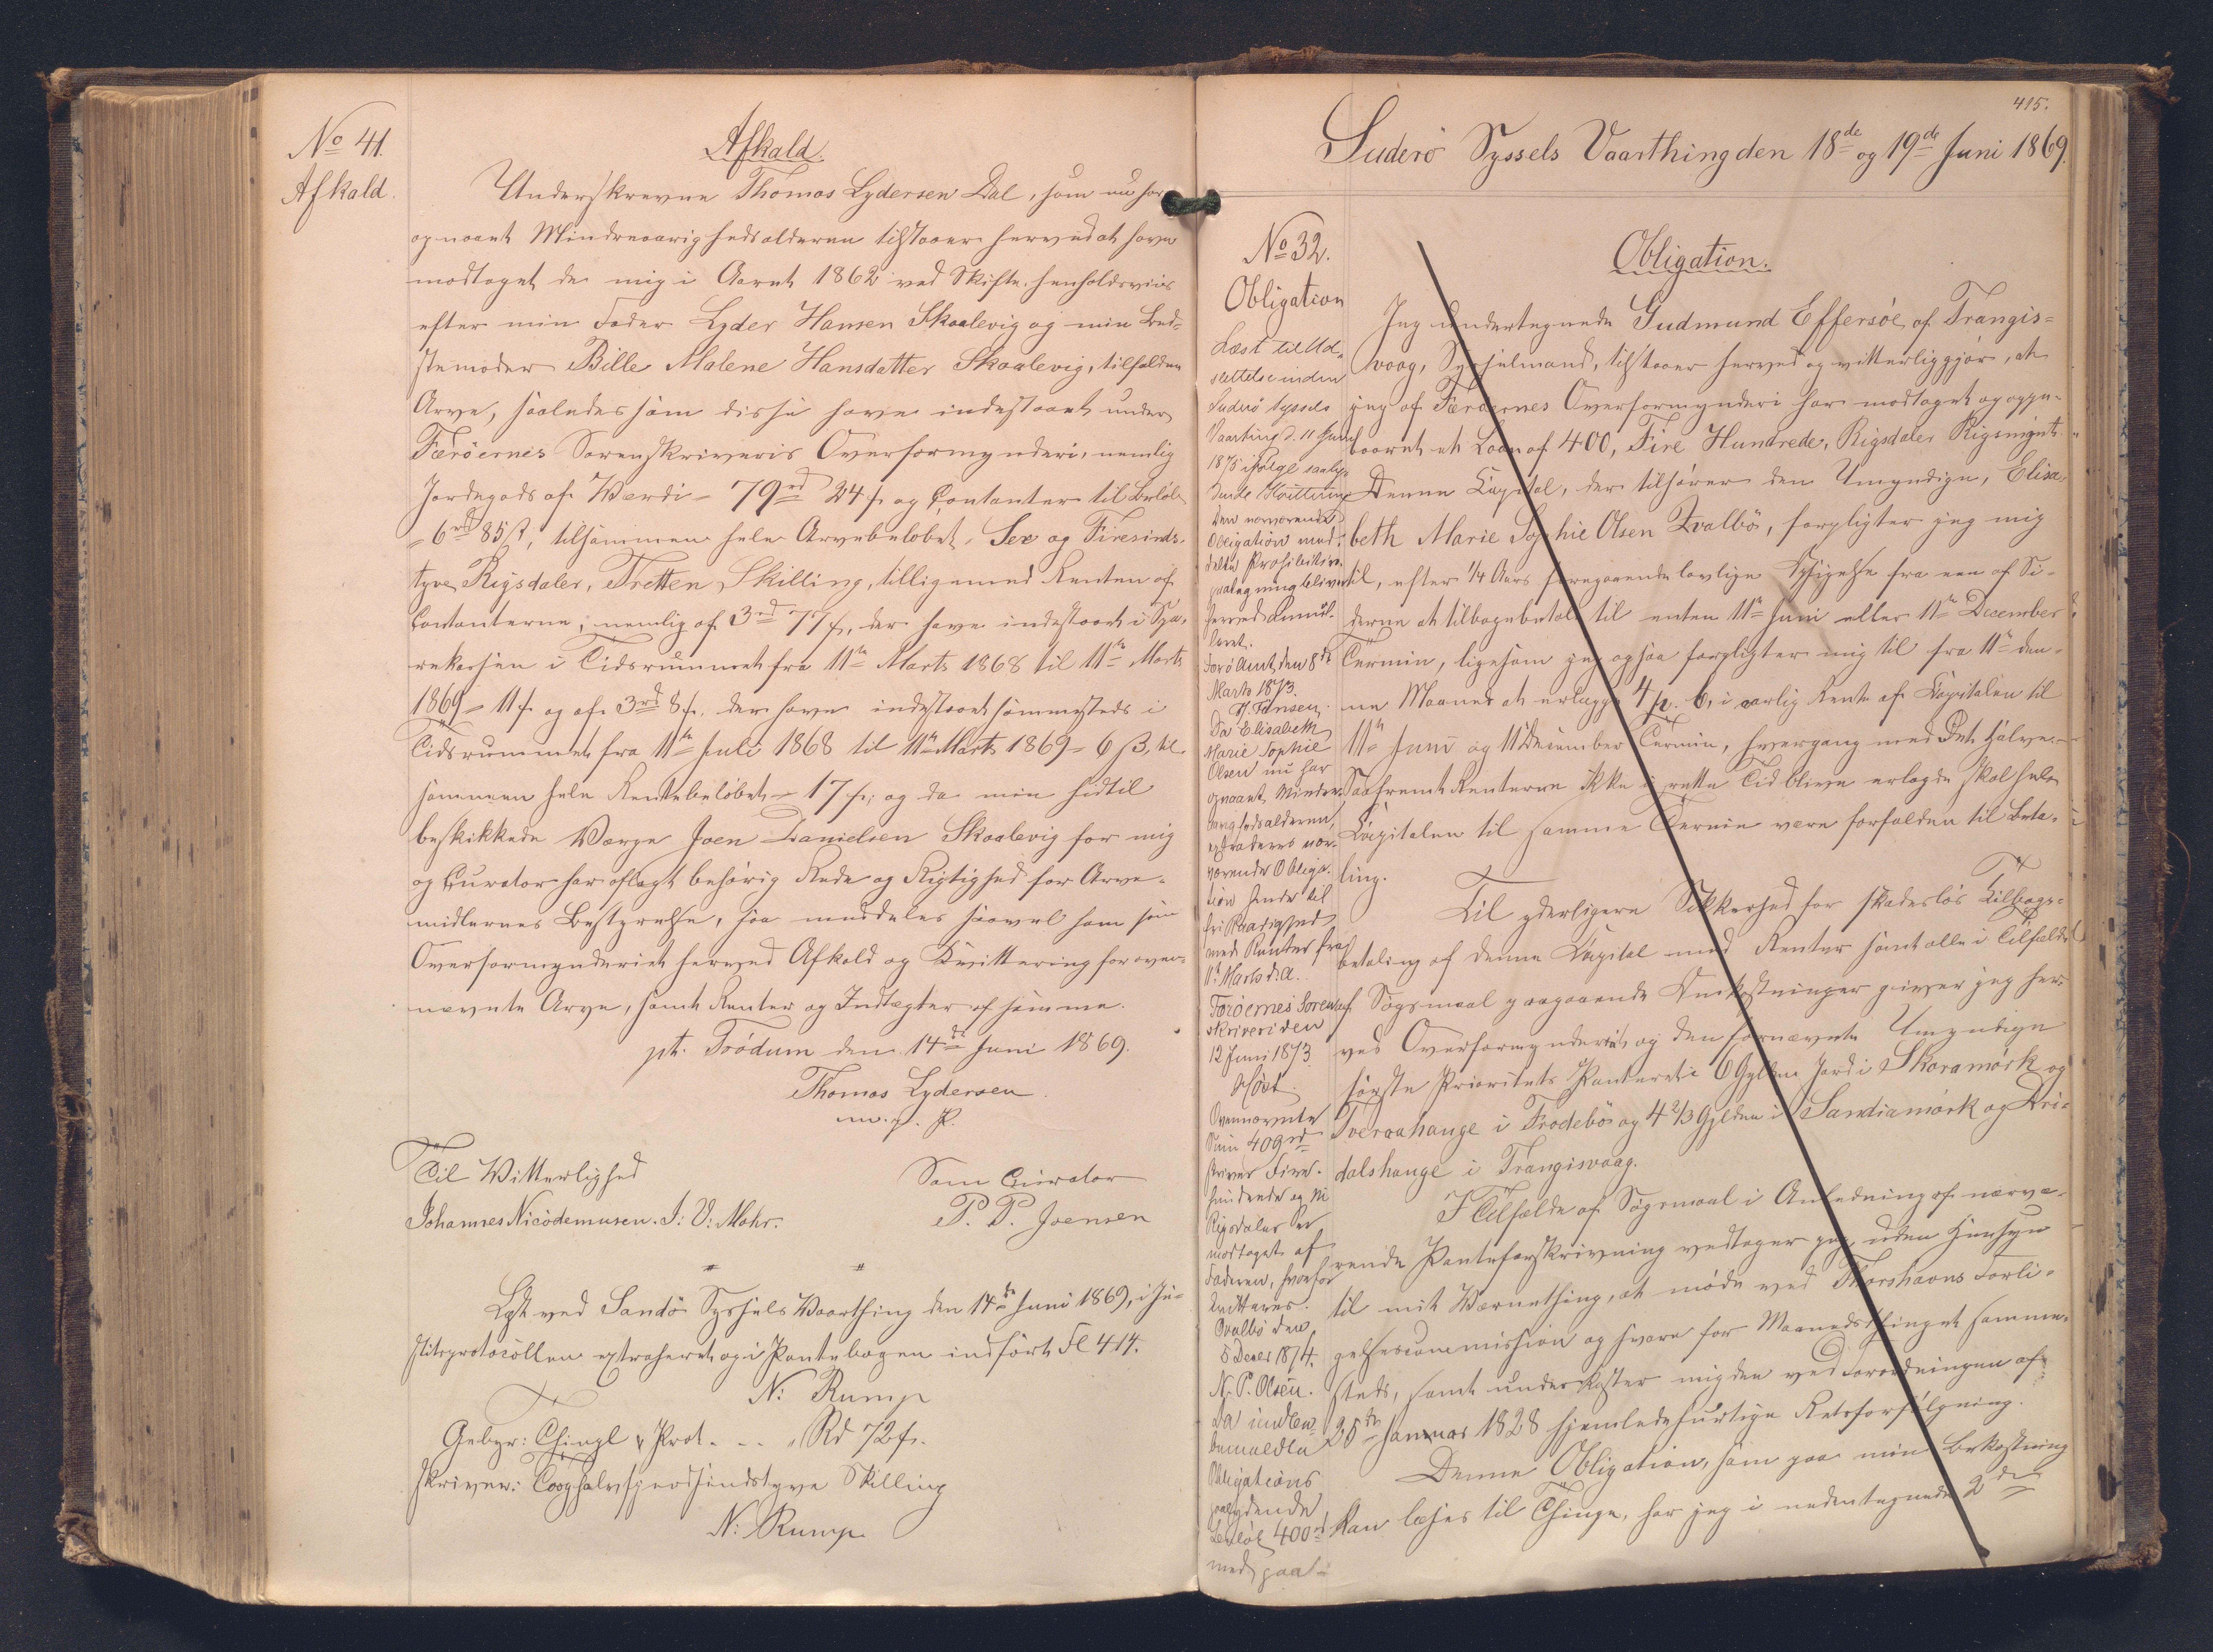 No 41.
Afkald.
Afkald.
Underskrevne Thomas Lydersen Dal, som nu har
opnaaet Mindreaarighedsalderen tilstaaer herved at have
modtaget de mig i Aaret 1862 ved Skifte henholdsviis
efter min Fader Lyder Hansen Skaalevig og min Bed-
stemoder Bille Malene Hansdatter Skaalevig, tilfaldne
Arve, saaledes som disse have indestaaet under
Færöernes Sorenskriveris Overformynderi, nemlig
Jordegods af Værdi = 79 rd 24 s og Contanter til Beløb
= 6 rd 85 s, tilsammen hele Arvebeløbet, Sex og Firesinds-
tyve Rigsdaler, Tretten Skilling, tilligemed Renten af
Contanterne, nemlig af 3 rd 77 s, der have indestaaet i Spa-
rekassen i Tidsrummet fra 11te Marts 1868 til 11te Marts
1869 = 11 s og af 3 rd 8 s. der have indestaaet sammesteds i
Tidsrummet fra 11te Juli 1868 til 11te Marts 1869 = 6 s, til-
sammen hele Rentebeløbet = 17 s; og da min hidtil
beskikkede Værge Joen Danielsen Skaalevig for mig
og Curator har aflagt behørig Rede og Rigtighed for Arve-
midlernes Bestyrelse, saa meddeles saavel ham som
Overformynderiet herved Afkald og Qvittering for oven-
nævnte Arve, samt Renter og Indtægter af samme.
pt. Trödum den 14de Juni 1869.
Thomas Lydersen
m. p. P.
Til Vitterlighed
Som Curator
Johannes Nicodemusen. J: V: Mohr.
P. P. Joensen
Læst ved Sandö Syssels Vaarthing den 14de Juni 1869, i Ju-
stitsprotocollen extraheret og i Pantebogen indført Fol 414.
N: Rump
Gebyr: Thingl & Prot. - .. " Rd 72 s.
skriver: Tooghalvfjerdsindstyve Skilling
N: Rump.
415.
Suderö Syssels Vaarthing den 18de og 19de Juni 1869.
No 32.
Obligation
Læst til Ud-
slettelse inden
Suderö Syssels
Vaarting d. 11 Juni
1875 ifølge saaly-
dende Qvittering
Den nærværende
Obligation med-
delte Prohibitiv-
paategning bliver
herved annul-
leret.
Færö Amt, den 8de
Marts 1873.
H. Finsen.
Da Elisabeth
Marie Sophie
Olsen nu har
opnaaet Mindre-
aarighedsalderen,
extraderes nær-
værende Obliga-
tion hende til
fri Raadighed
med Renter fra
11te Marts d. A.
Færöernes Soren-
skriveri den
12 Juni 1873
Høst.
Ovennævnte
Sum 409 rd
skriver Fire-
hundrede og Ni
Rigsdaler har
modtaget af
Faderen, hvorfor
kvitteres.
Qvalbö den
5 Decbr 1874.
N. P. Olsen.
Da
bemældte
Obligations
paalydende
Beløb 400 rd
med paa-
Obligation.
Jeg undertegnede Gudmund Effersöe, af Trangis-
vaag, Sysselmand, tilstaaer herved og vitterliggjør, at
jeg af Færöernes Overformynderi har modtaget og oppe-
baaret et Laan af 400, Fire Hundrede, Rigsdaler Rigsmynt.
Denne Capital, der tilhører den Umyndige, Elisa-
beth Marie Sophie Olsen Qvalbö, forpligter jeg mig
til, efter 1/4 Aars foregaaende lovlige Opsigelse fra een af Si-
derne at tilbagebetale til enten 11te Juni eller 11te December
Termin, ligesom jeg ogsaa forpligter mig til fra 11te den-
ne Maaned at erlægge 4 p. C. i aarlig Rente af Capitalen til
11te Juni og 11 December Termin, hvergang med Det halve.
Saafremt Renterne ikke i rette Tid bliver erlagde skal hele
Capitalen til samme Termin være forfalden til Beta-
ling.
Til yderligere Sikkerhed for skadesløs Tilbage-
betaling af denne Capital med Renter samt alle i Tilfælde
af Søgsmaal paagaaende Omkostninger giver jeg her-
ved Overformynderiet og den fornævnte Umyndige
første Prioritets Panteret i 6 Gylden Jord i Skoramörk og
Tveraahauge i Frodebö og 4 2/3 Gylden i Sandiamörk og Dri-
dalshauge i Trangisvaag.
I Tilfælde af Søgsmaal i Anledning af nærvæ-
rende Panteforskrivning vedtager jeg, uden Hensyn
til mit Værnething, at møde ved Thorshavns Forli-
gelsescommission og svare for Maanedsthinget samme-
steds, samt underkaster mig den ved Forordningen af
25de Januar 1828 hjemlede hurtige Retsforfølgning.
Denne Obligation, som paa min Bekostning
kan læses til Thinge, har jeg i nedentegnede 2de